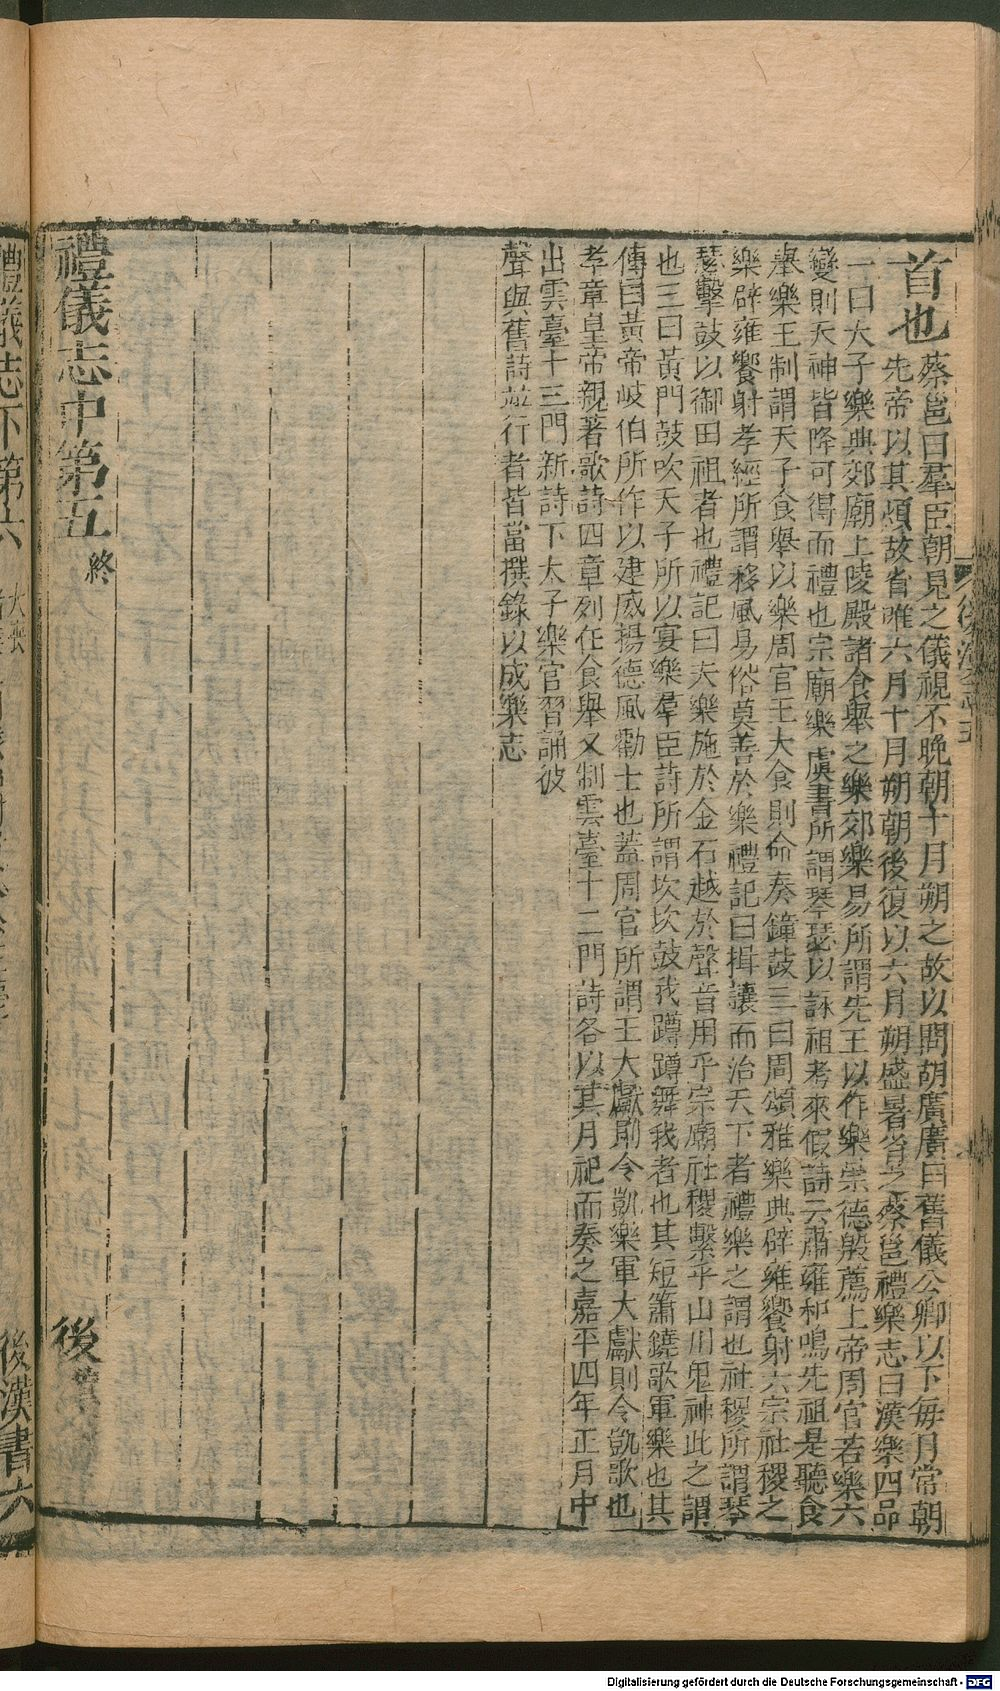 首也
蔡邕曰羣臣朝見之儀視不晚朝十月朔之故以問胡廣廣曰舊儀公卿以下每月常朝
先帝以其煩故省唯六月十月朔朝後復以六月朔盛暑省之蔡邕禮樂志曰漢樂四品
一曰大子樂典郊廟上陵殿諸食舉之樂郊樂易所謂先王以作樂崇德殷薦上帝周官若樂六
變則天神皆降可得而禮也宗廟樂虞書所謂琴瑟以詠祖考來假詩云肅雍和鳴先祖是聽食
舉樂王制謂天子食舉以樂周官王大食則命奏鐘鼓二曰周頌雅樂典辟雍饗射六宗社稷之
樂辟雍饗射孝經所謂移風易俗莫善於樂禮記曰揖讓而治天下者禮樂之謂也社稷所謂琴
瑟擊鼓以御田祖者也禮記曰夫樂施於金石越於聲音用乎宗廟社稷繫乎山川鬼神此之謂
也三曰黃門鼓吹天子所以宴樂羣臣詩所謂坎坎鼓我蹲蹲舞我者也其短簫鐃歌軍樂也其
傳曰黃帝岐伯所作以建威揚德風勸士也蓋周官所謂王大獻則令凱樂軍大獻則令凱歌也
孝章皇帝親著歌詩四章列在食舉又制雲臺十二門詩各以其月祀而奏之嘉平四年正月中
出雲臺十三門新詩下太子樂官習誦彼
聲與舊詩並行者皆當撰錄以成樂志
禮儀志中第五 終
後漢
禮儀志下第六 大喪
後漢書六
Digitalisierung gefördert durch die Deutsche Forschungsgemeinschaft - DFG